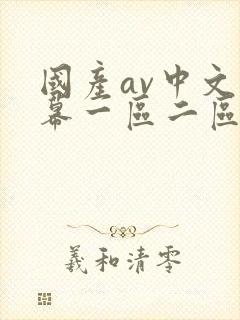 國產av中文
幕一區二區
羲和清零